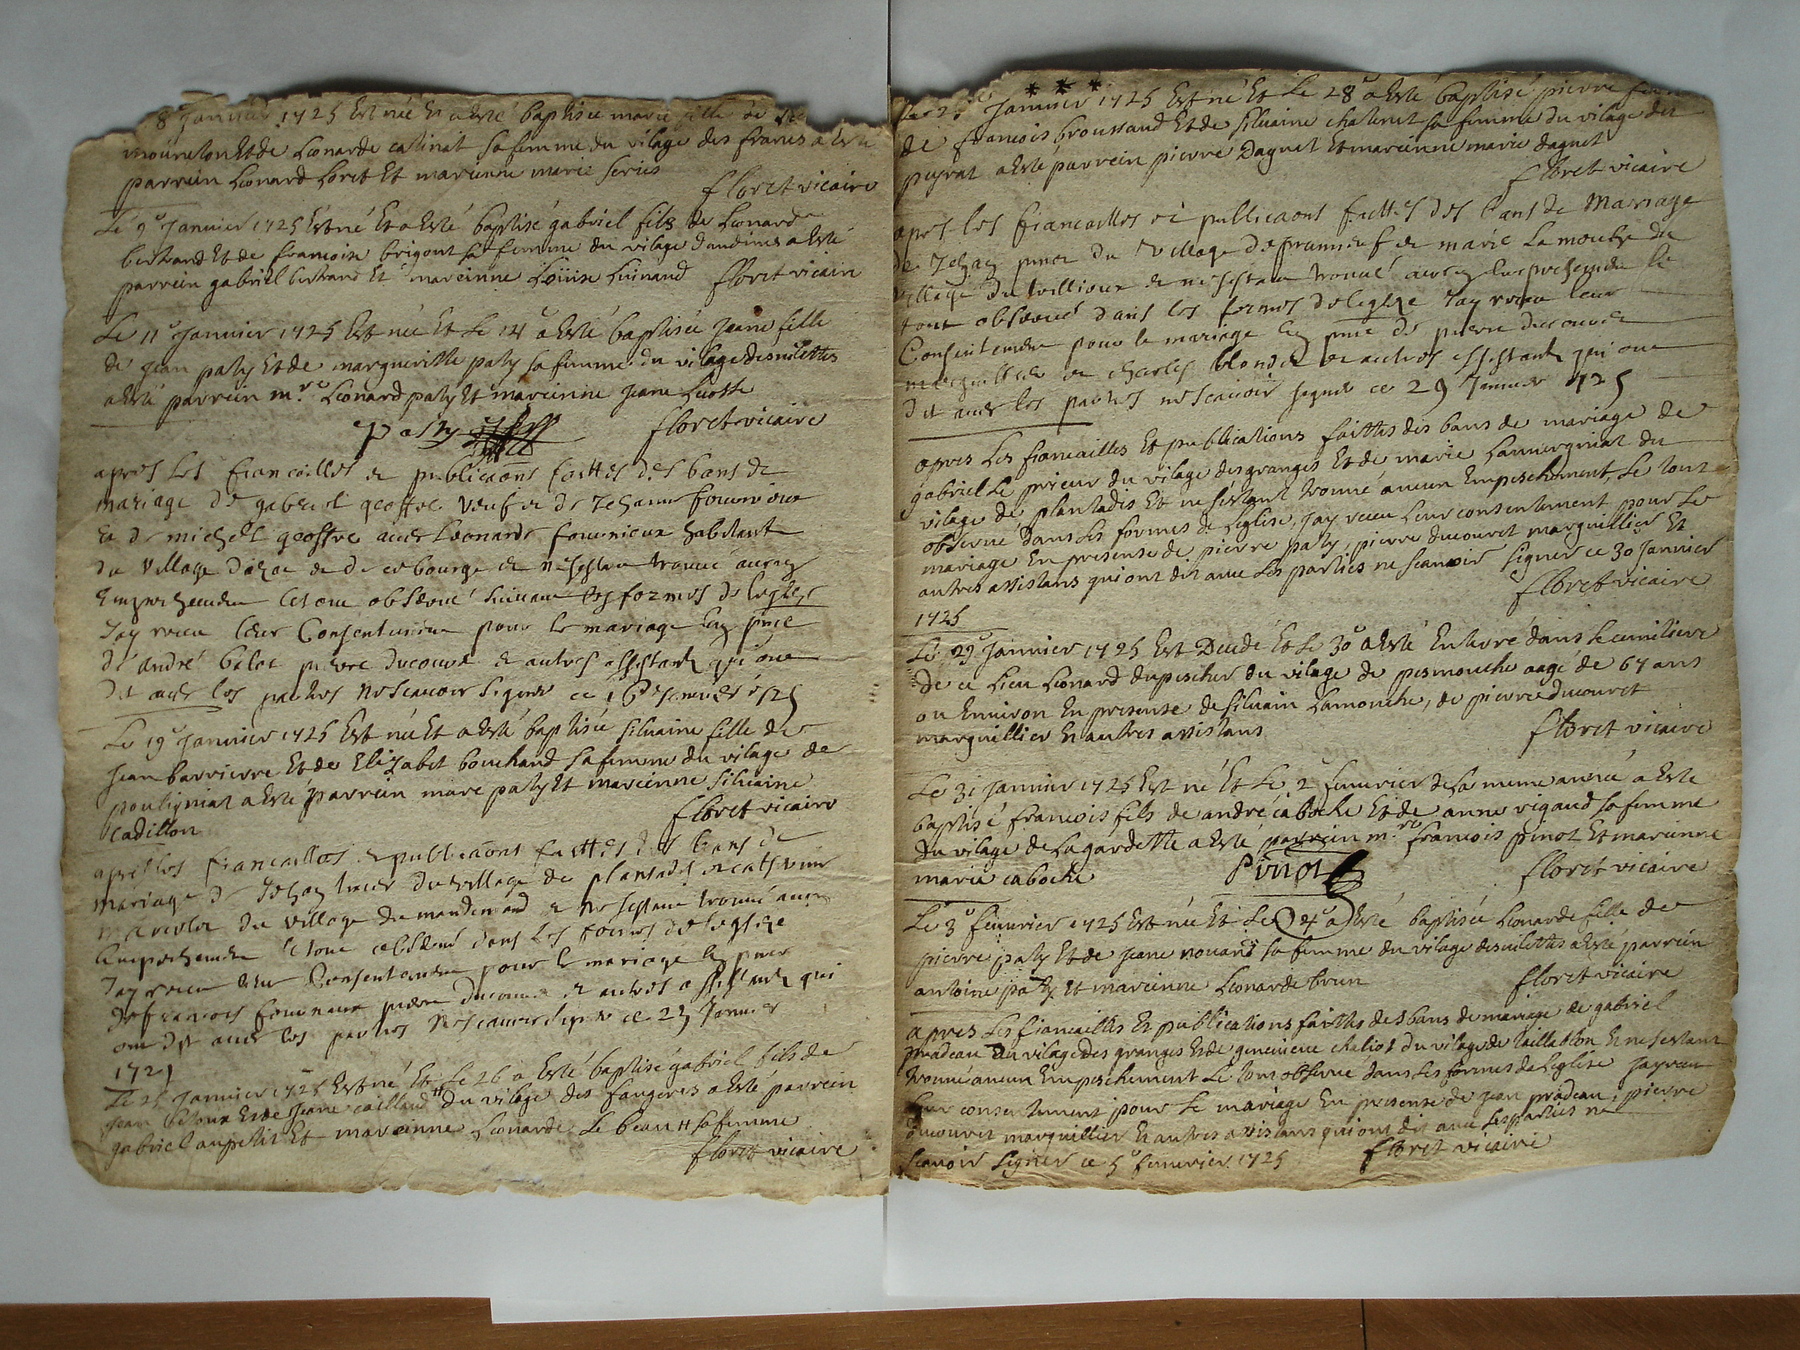 8 Janvier 1725 Est née Et a Esté baptisée marie fille de
mourelon Et de Leonarde catinat sa femme du vilage des francs a Esté
parrein Leonard Loret Et mareinne marie series
floret vicaire
Le 9e Janvier 1725 Est né Et a Esté baptisé gabriel fils de Leonard
bertrand Et de francoise brigout sa femme du vilage a Esté
parrein gabriel bertrand Et mareinne Loüise floret vicaire
Le 11e Janvier 1725 Est née Et Le 14e a Esté baptisée Jeane fille
de jean paty Et de margueritte paty sa femme du vilage des
a Esté parrein m.re Leonard paty Et mareinne Jeane
paty floret vicaire
apres les fiancailles et publicaons faittes des bans de
mariage de gabriel geoffre veuf de Jehanne
Et de michell geoffre avec Leonarde fournieux habitant
du village et de ce bourge et ne sestant trouvé aucung
Empechement le tout observé suivant les formes de leglize
Jay receu leur Consentement pour le mariage En pnce
de andré pierre ducouret et autres assistants qui ont
dit avec les parties ne scavoir signer ce 16e Janvier 1725
Le 19e Janvier 1725 Est née Et a Esté baptisée silvaine fille de
jean barrierre Et de Elizabet bouchaud sa femme du vilage de
pouligniat a Esté parrein marc paty Et mareinne silvaine
cadillon floret vicaire
apres les fiancailles et publicaons faittes des bans de
mariage de Jehan du village de plantadis et catherine
du village de et ne sestant trouvé aucun
Empechement le tout observé dans les formes de leglize
Jay receu leur Consentement pour le mariage En pnce
de francois pierre ducouret et autres assistants qui
ont dit avec les parties ne scavoir signer ce 23 Janvier
1725
Le 25 Janvier 1725 Est né Et Le 26 a Esté baptisé gabriel fils de
jean Et de Jeane caillaud du vilage des fougeres a Esté parrein
gabriel aupetit Et mareinne Leonarde Le beau sa femme
floret vicaire
Janvier 1725 Est né Et Le 28e a Esté baptisé pierre
de francois broussaud Et de silvaine chatenet sa femme du vilage du
peyrat a Esté parrein pierre Dagnet Et mareinne marie dagnet
floret vicaire
apres les fiancailles et publicaons faittes des bans de Mariage
de Jehan du village de et marie Lamouche du
village du et ne sestant trouvé aucung Empechement le
tout observé dans les formes de leglize Jay receu leur
Consentement pour le mariage En pnce de pierre ducouret
marguillier et charles blondet et autres assistants qui ont
dit avec les parties ne scavoir signer ce 29 Janvier 1725
apres Les fiancailles Et publications faittes des bans de mariage de
gabriel Le prieur du vilage des granges Et de marie Lauvergniat du
vilage de plantadis Et ne sestant trouvé aucun Empechement, Le tout
observé dans Les formes de Leglise, Jay receu Leur consentement pour Le
mariage En presense de pierre paty, pierre ducouret marguillier Et
autres assistans qui ont dit avec Les parties ne scavoir signer ce 30 Janvier
1725 floret vicaire
Le 29e Janvier 1725 Est Decedé Et Le 30e a Esté Enterré dans Le cimitiere
de ce Lieu Leonard dupescher du vilage de pesmouche aagé de 67 ans
ou Environ En presense de silvain Lamouche, de pierre ducouret
marguillier Et autres assistans floret vicaire
Le 31 Janvier 1725 Est né Et Le 2e fevvrier de La meme année a Esté
baptisé francois fils de andre caboche Et de anne rigaud sa femme
du vilage de La gardette a Esté parrein m.re francois pinot Et mareinne
marie caboche Pinot floret vicaire
Le 3e fevvrier 1725 Est née Et Le 4e a Esté baptisée Leonarde fille de
pierre paty Et de Jeane nouand sa femme du vilage des a Esté parrein
antoine paty Et mareinne Leonarde brun floret vicaire
apres Les fiancailles Et publications faittes des bans de mariage de gabriel
pradeau du vilage des granges Et de genevieve chaliot du vilage de taillablon Et ne sestant
trouvé aucun Empechement Le tout observé dans Les formes de Leglise Jay receu
Leur consentement pour Le mariage En presense de jean pradeau, pierre
ducouret marguillier Et autres assistans qui ont dit avec Les parties ne
scavoir signer ce 5e fevvrier 1725 floret vicaire